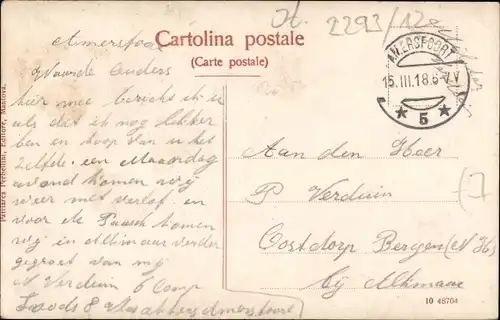 It. 2293/12
Amersfoort
Cartolina postale
(Carte postale)
AMERSFOORT
15.III.18.6-7V
* 5 *
Waarde Ouders
hier mee bericht ik u
als dat ik nog lekker
ben en hoop van u het
zelfde. een Maandag
avond komen wij
weer met verlof en
voor de Paasch komen
wij in Alkmaar verder
gegroet van mij
N Verduin 6 Comp
Loods 8 Amersfoort
Aan den Heer
P Verduin
Oostdorp Bergen (N H)
bij Alkmaar
10 48704
Partarea Perbellini, Editore, Mantova.